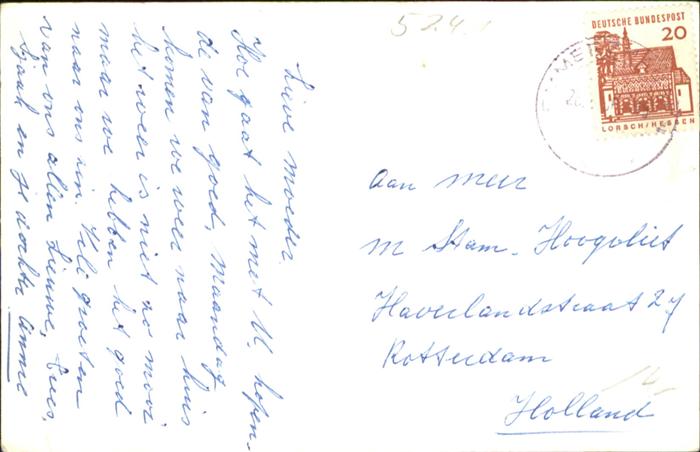 Lieve moeder.
Hoe gaat het met U, hopen-
de van goed, maandag
komen we weer naar huis
het weer is niet zo mooi
maar we hebben het goed
naar ons zin. Vele groeten
van ons allen Lieuwe, Cees,
Sjaak en Je dochter Annie
524.
DEUTSCHE BUNDESPOST
20
LORSCH/HESSEN
aan meer
m Stam-Hoogvliet
Haverlandstraat 27
Rotterdam
Holland